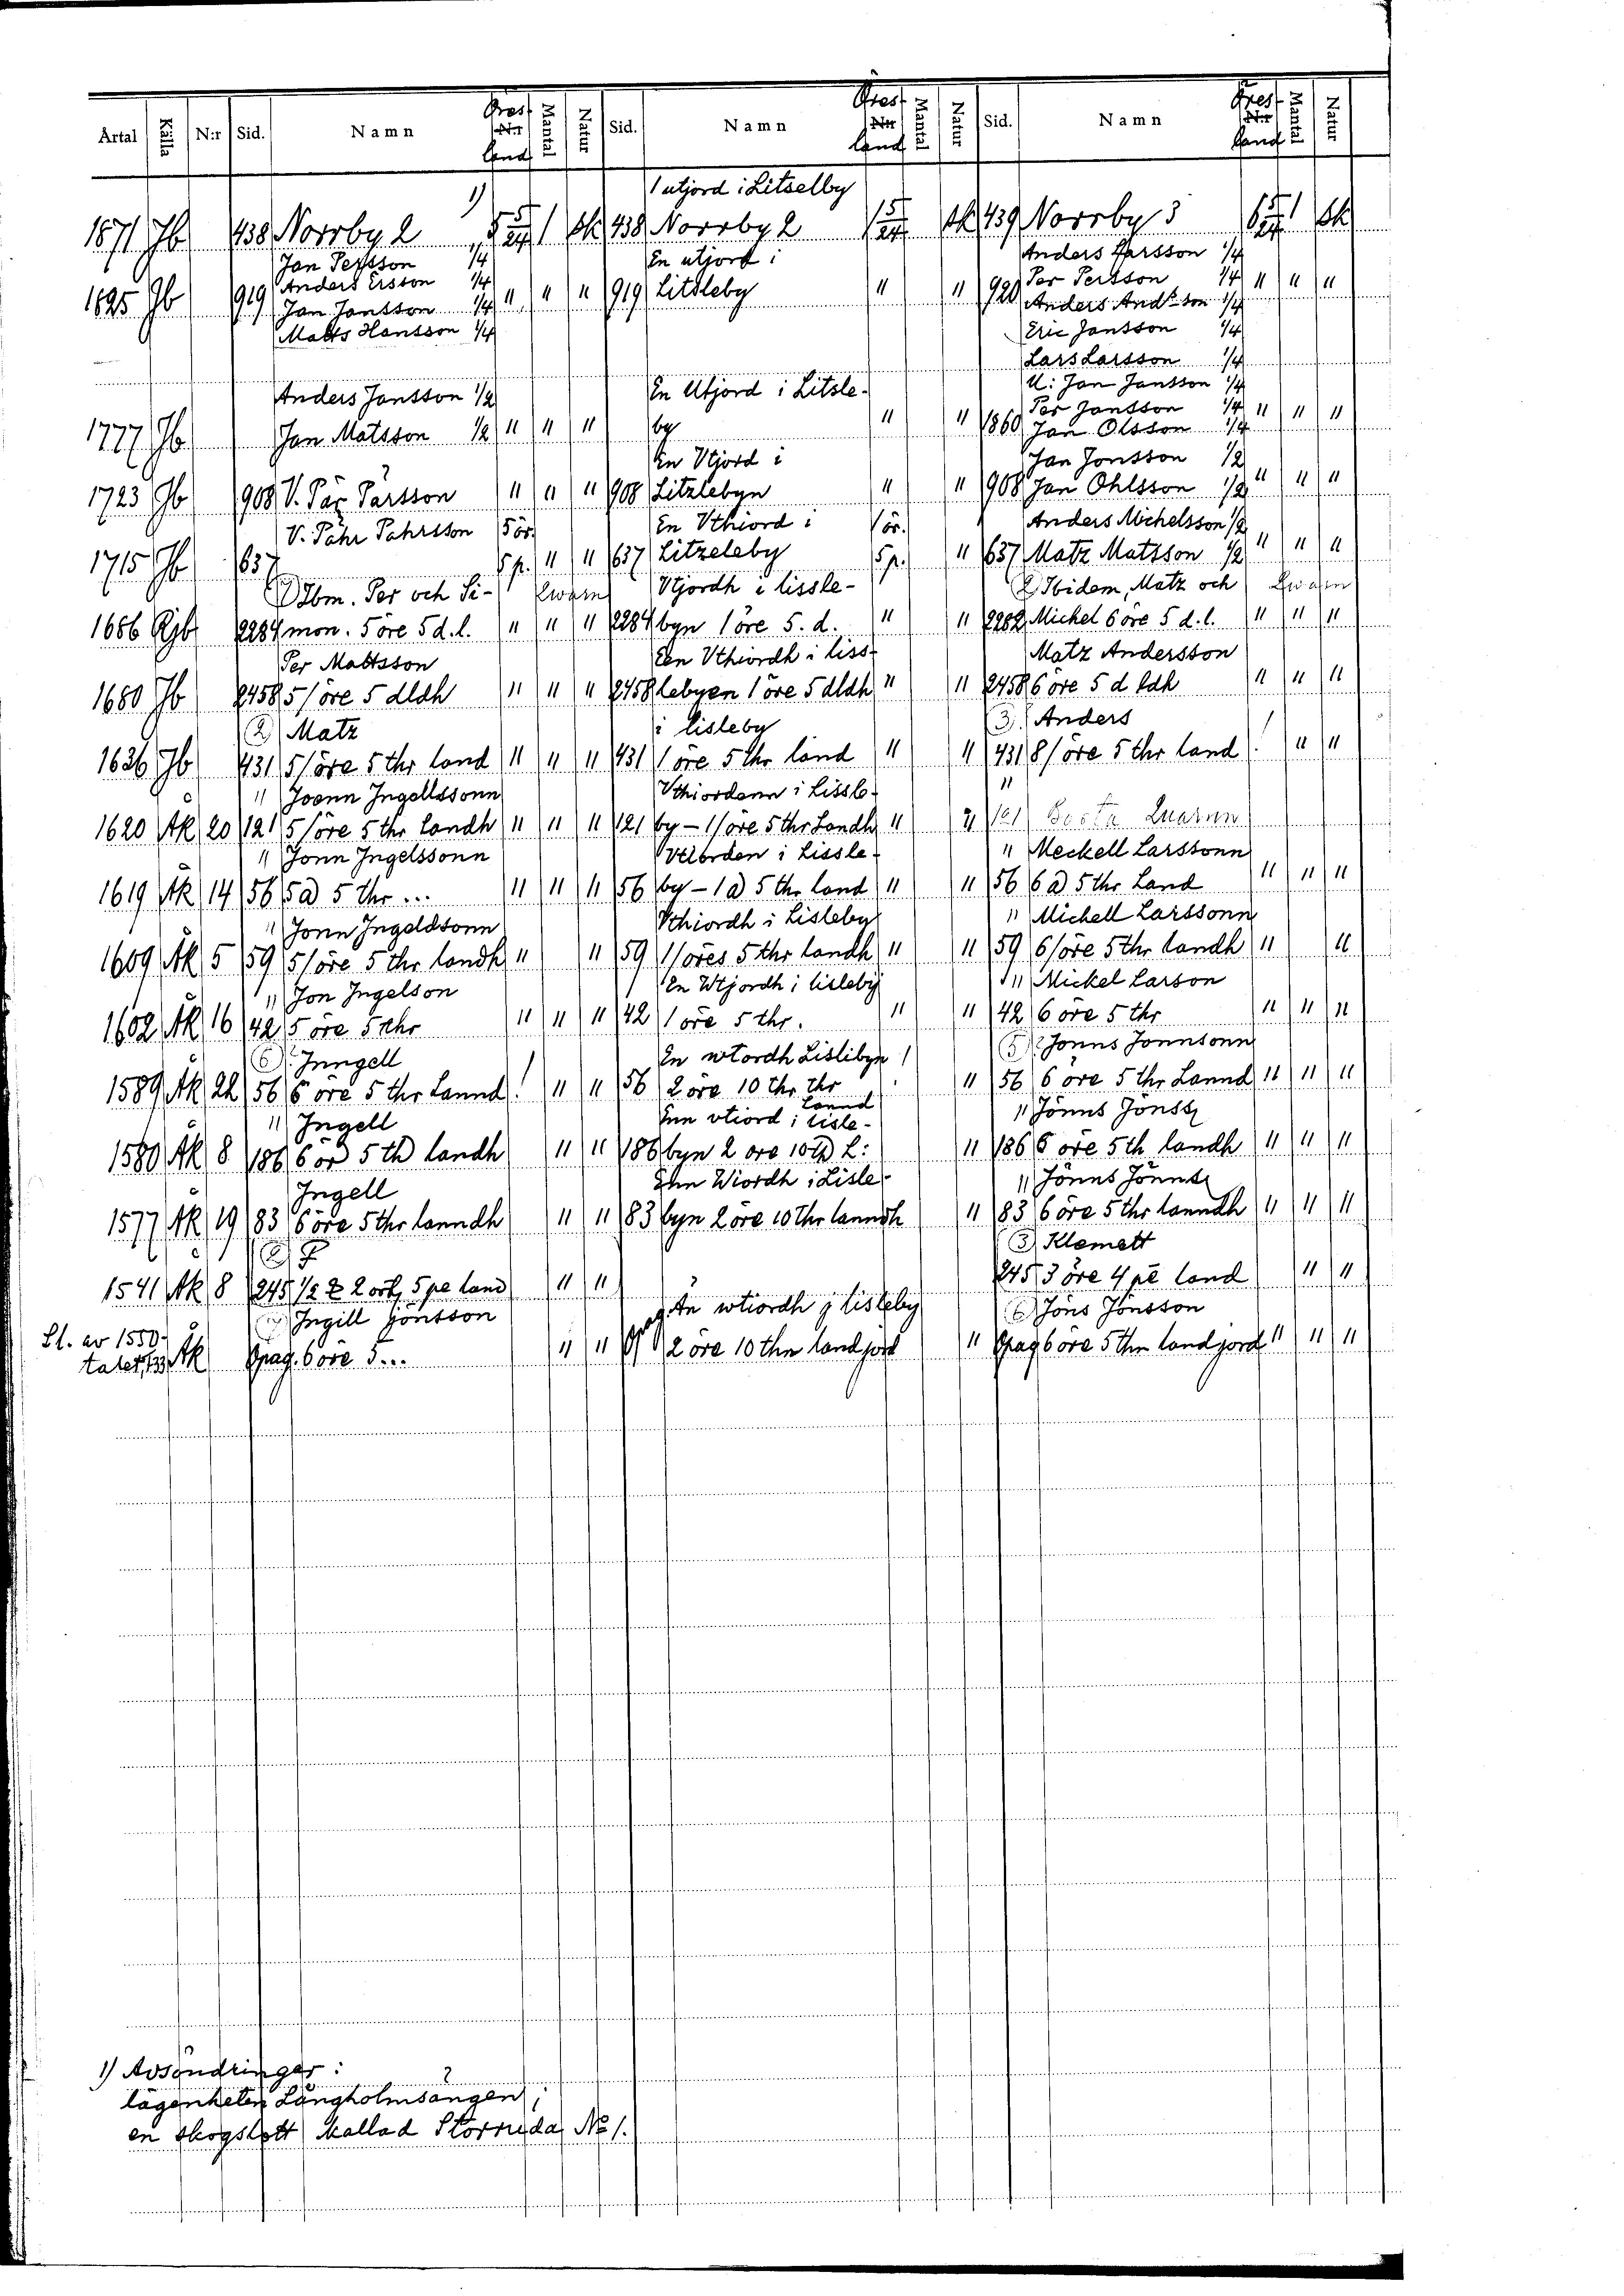 Årtal Källa N:r Sid. Namn Öresland Mantal Natur Sid. Namn Öresland Mantal Natur Sid. Namn Öresland Mantal Natur
1) 1 utjord i Litselby
1871 Jb 438 Norrby 2 5 5/24 1 sk 438 Norrby 2 1 5/24 sk 439 Norrby 3 6 5/24 1 sk
Jan Persson 1/4 En utjord i Anders Parsson 1/4
Anders Ersson 1/4 Per Persson 1/4
1825 Jb 919 Jan Jansson 1/4 " " " 919 Litsleby " " 920 Anders And:son 1/4 " " "
Matts Hansson 1/4 Eric Jansson 1/4
Lars Larsson 1/4
Anders Jansson 1/2 En Utjord i Litsle- U: Jan Jansson 1/4
Per Jansson 1/4
1777 Jb Jan Matsson 1/2 " " " by " " 1860 Jan Olsson 1/4 " " "
En Utjord i Jan Jonsson 1/2
1723 Jb 908 V. Pär Pärsson " " " 908 Litzlebyn " " 908 Jan Ohlsson 1/2 " " "
V. Pähr Pährsson 5 ör. En Vthiord i 1 ör. Anders Michelsson 1/2
1715 Jb 637 5 p. " " 637 Litzeleby 5 p. " 637 Matz Matsson 1/2 " " "
2) Ibm. Per och Si- kwarn Vtjordh i lissle- 2) Ibidem, Matz och kwarn
1686 Rjb 2284 mon. 5 öre 5 d.l. " " " 2284 byn 1 öre 5. d. " " 2282 Michel 6 öre 5 d.l. " " "
Per Mattsson Een Vthiordh i liss- Matz Andersson
1680 Jb 2458 5 öre 5 dldh " " " 2458 lebyen 1 öre 5 dldh " " 2458 6 öre 5 d ldh " " "
2) Matz i lisleby 3) Anders
1636 Jb 431 5 öre 5 thr land " " " 431 1 öre 5 thr land " " 431 8 öre 5 thr land ! " "
" Joenn Ingellssonn Vthiordenn i Lissle- "
1620 Äk 20 121 5 öre 5 thr Landh " " " 121 by - 1 öre 5 thr Landh " " 121 Quarnn
" Jonn Ingelssonn i Lissle- " Meckell Larssonn
1619 Äk 14 56 5 ø 5 thr ... " " " 56 by - 1 ø 5 thr land " " 56 6 ø 5 thr Land " " "
" Jonn Ingeldsonn Vthiordh i Lisleby " Michell Larssonn
1609 Äk 5 59 5 öre 5 thr landh " " 59 1 öres 5 thr landh " " 59 6 öre 5 thr landh " "
" Jon Ingelson En Wtjordh i lisleby " Mickel Larson
1602 Äk 16 42 5 öre 5 thr " " " 42 1 öre 5 thr. " " 42 6 öre 5 thr " " "
6) Jnngell En wtordh Lislibyn ! 5) Jonns Jonnsonn
1589 Äk 22 56 6 öre 5 thr Lannd ! " " 56 2 öre 10 thr thr Lannd " 56 6 öre 5 thr Lannd " " "
" Ingell Enn vtiord i Lisle- " Jönns Jönss
1580 Äk 8 186 6 ör 5 th landh " " 186 byn 2 ore 10 th L: " 186 6 öre 5 th landh " " "
Ingell Ehn Wiordh i Lisle- " Jönns Jönns
1577 Äk 19 83 6 öre 5 thr lanndh " " 83 byn 2 öre 10 thr lanndh " 83 6 öre 5 thr lanndh " " "
2) 3) Klemett
1541 Äk 8 245 1/2 2 ort 5 pe land " " 245 3 öre 4 pe land " "
Ingill Jönsson Än wtiordh j lisleby 6) Jöns Jönsson
Sl. av 1550-
talet, 133 Äk Opag. 6 öre 5 ... " " Opag 2 öre 10 thn landjord " Opag 6 öre 5 thn landjord " " "
1) Avsöndringar:
lägenheten Långholmsängen ?;
en skogslott kallad Storruda No 1.